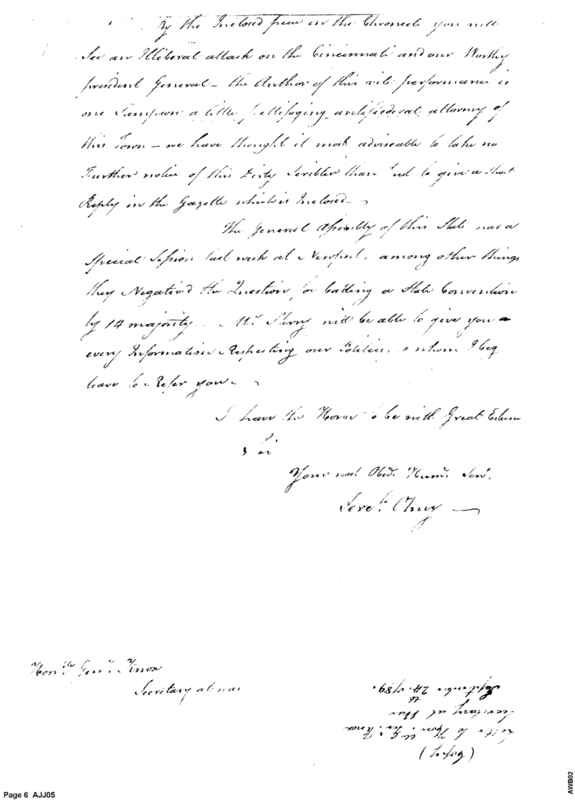 By the Inclosed peice in the Chronicle you will
See an Illiberal attack on the Cincinnati and our Worthy
president General – the Author of this vile performance is
one Sampson a little pettifoging antifœderal attorney of
this Town – we have thought it most adviseable to take no
Further notice of this Dirty Scribler than Just to give a Short
Reply in the Gazette which is Inclosed –
The General Assembly of this State had a
Special Session last week at Newport, among other things
they Negativ'd the Question for Calling a State Convention
by 14 majority – Mr. Sherry will be able to give you
every Information Respecting our Politics, to whom I beg
leave to Refer you –
I have the Honor to be with Great Esteem
Sir
Your most Obed. Hum. Serv.
Jere.h Olney
Honble. Genl. Knox
Secretary at war
(Copy)
Letter to Hon. Gen. Knox
Secretary at War
September 24th. 1789.
Page 6 AJJ05
AWB02